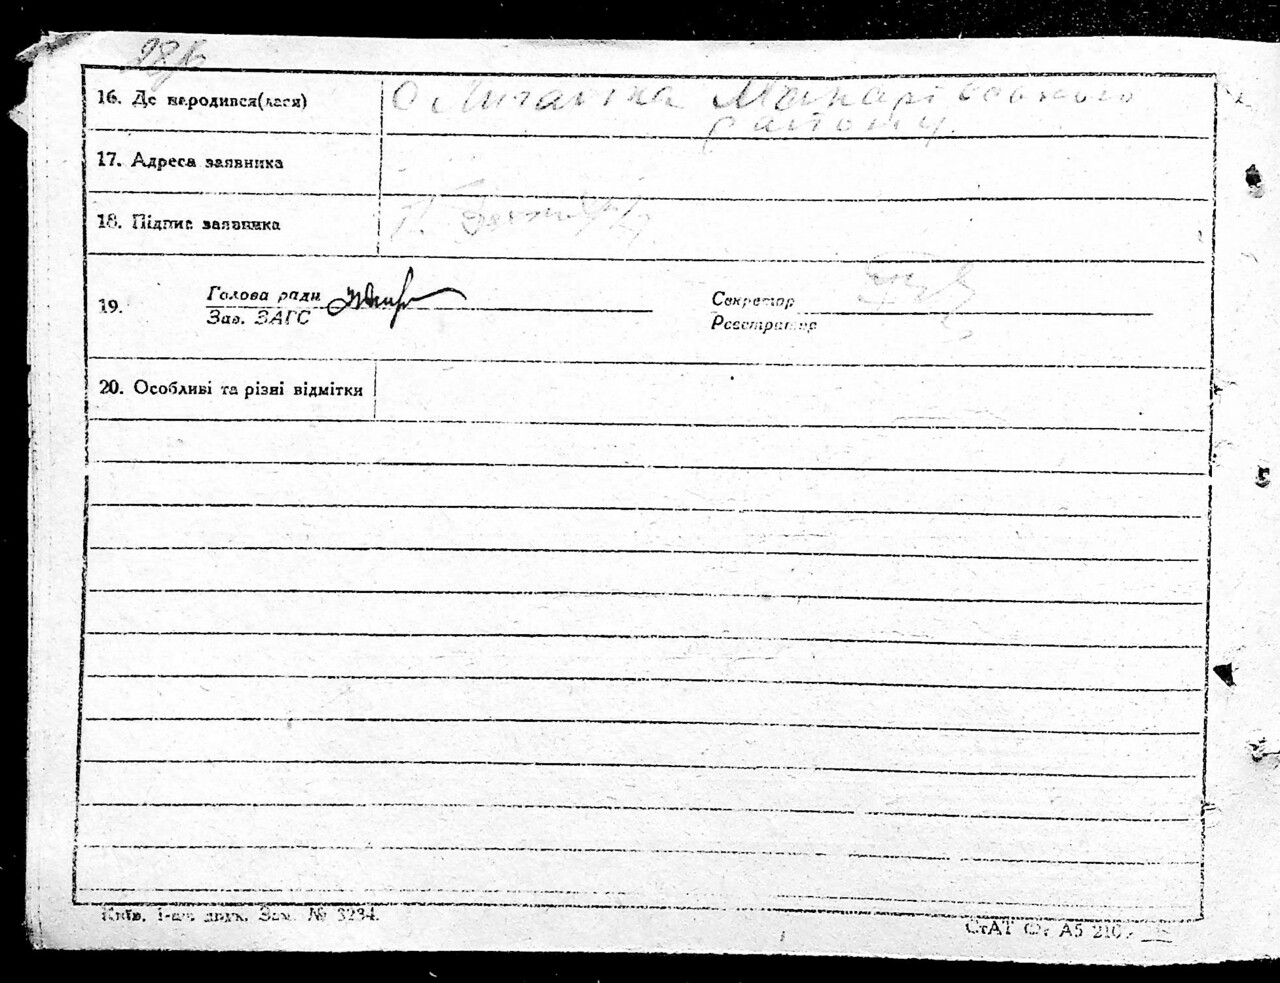 286
16. Де народився(лася) с. Липавка Макарівського
району
17. Адреса заявника
18. Підпис заявника
19. Голова ради Секретар
Зав. ЗАГС Реєстратор
20. Особливі та різні відмітки
Київ. 1-ша друк. Зам. № 3234.
СтАТ Ф. А5 210